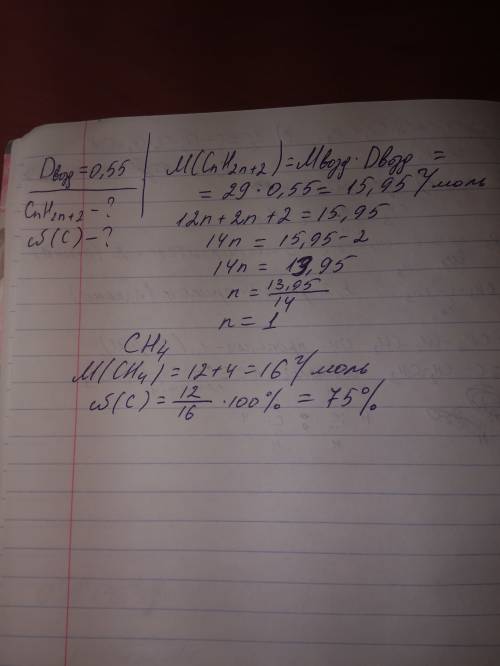 Dвозд = 0,55
CnH2n+2 – ?
ω(C) – ?
M(CnH2n+2) = Mвозд · Dвозд =
= 29 · 0,55 = 15,95 г/моль
12n + 2n + 2 = 15,95
14n = 15,95 – 2
14n = 13,95
n = 13,95/14
n = 1
CH4
M(CH4) = 12 + 4 = 16 г/моль
ω(C) = 12/16 · 100% = 75%